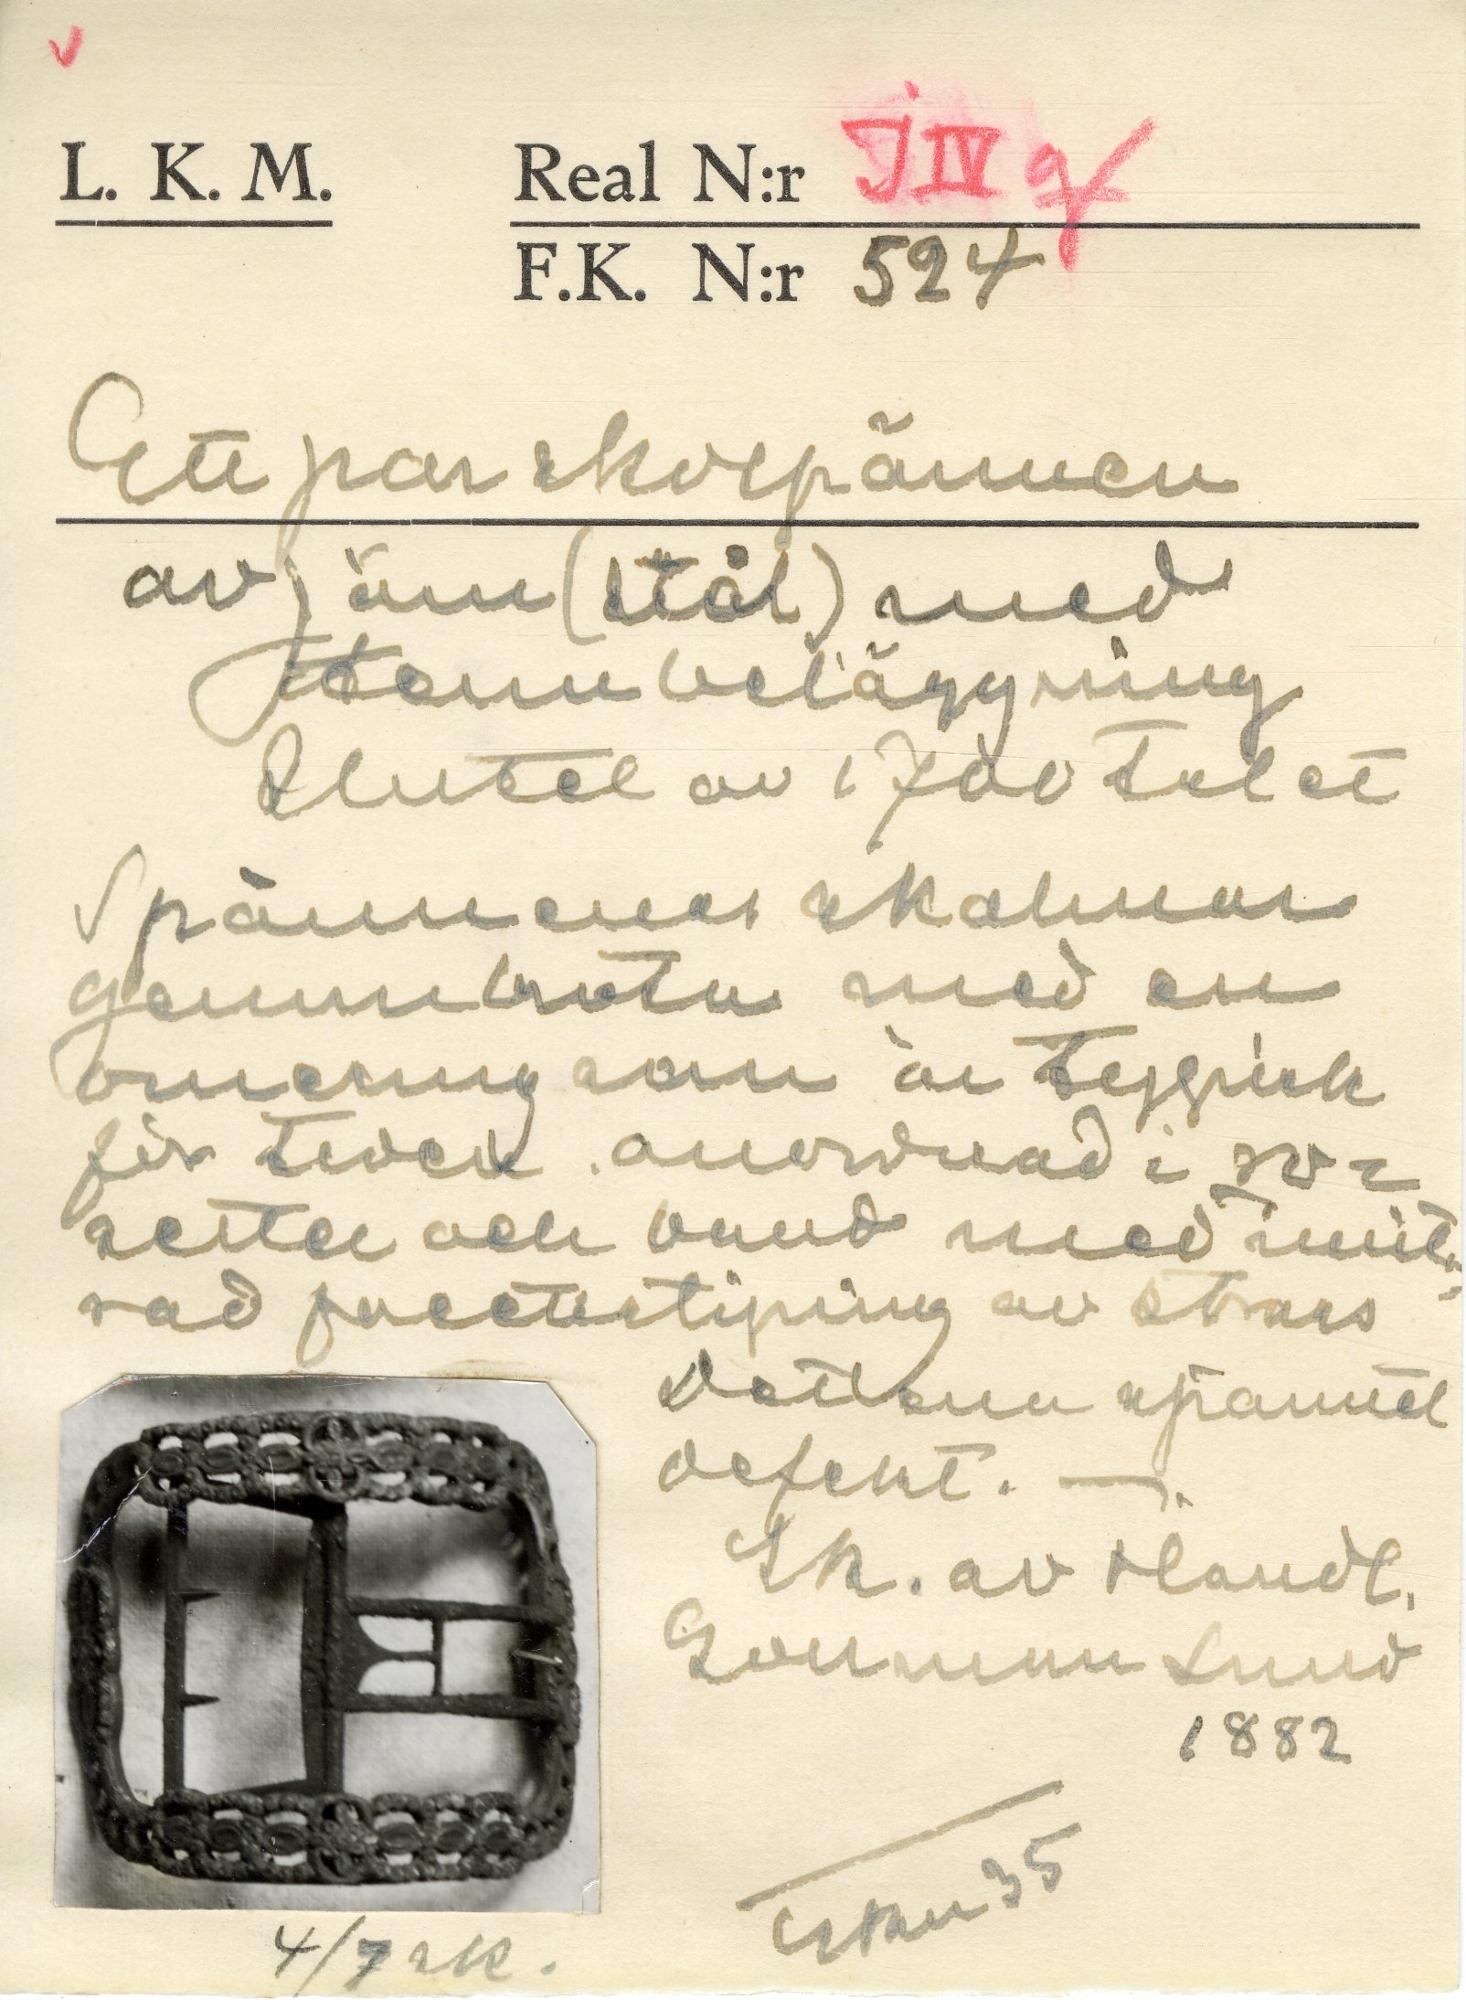 L. K. M. Real N:r J IV g
F.K. N:r 524
Ett par skospännen
av järn (stål) med
tennbeläggning
Slutet av 1700 talet
Spännenas skalmar
genombrutna med en
ornering som är typisk
för tiden anordnad i ro-
setter och band med imite-
rad facettslipning av strass
Detta spännet
defekt. —
Sk. av Handl.
Lund
1882
35
4/7 sk.